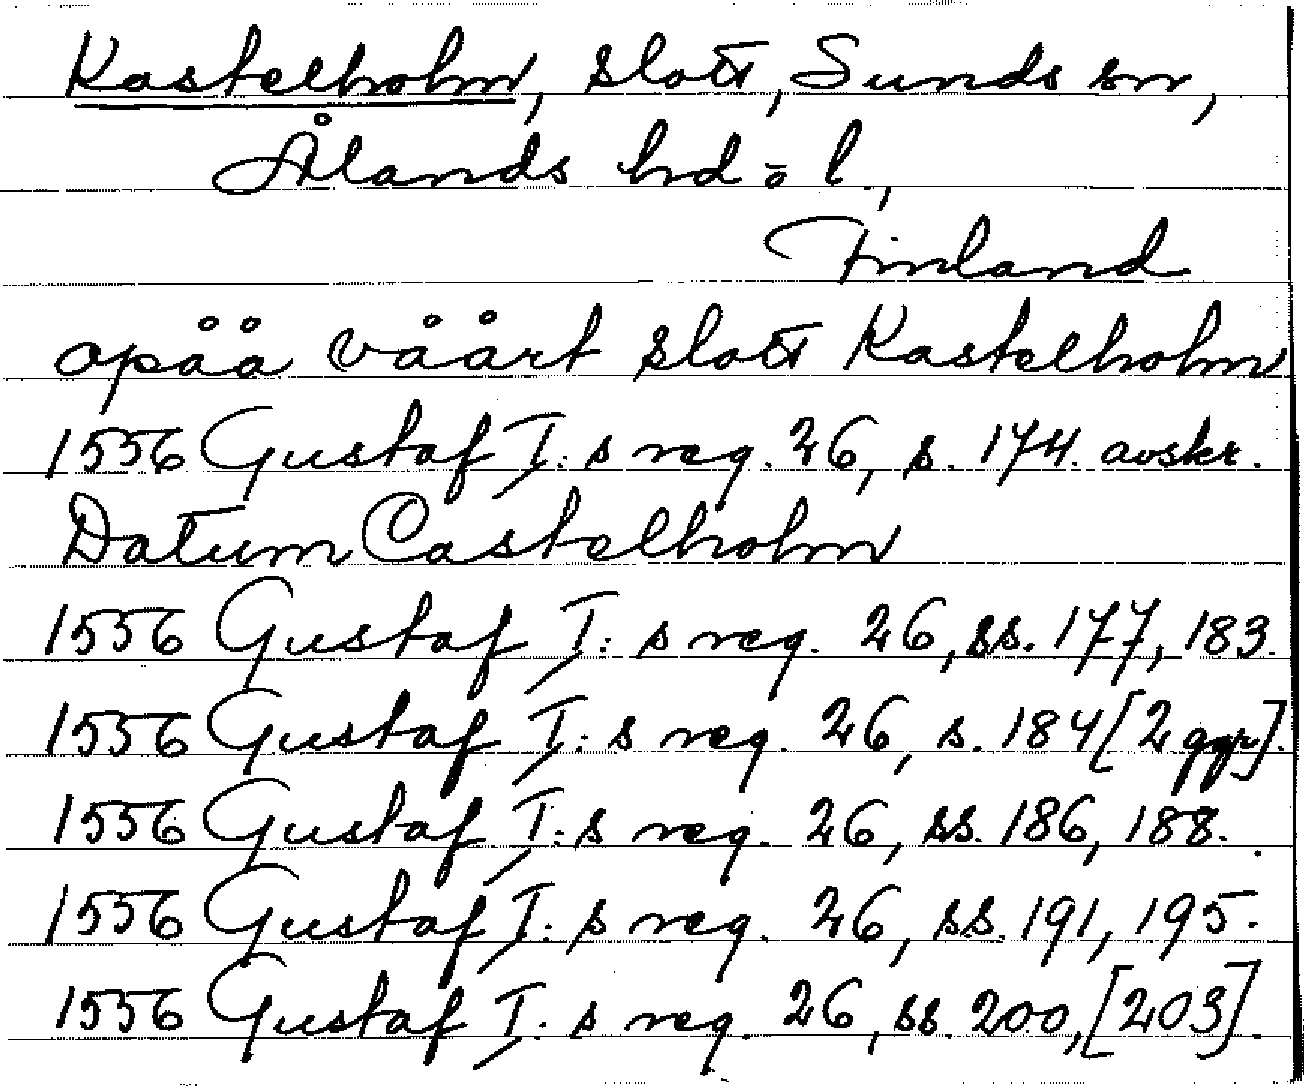 Kastelholm, slott, Sunds sn,
Ålands hd o l.,
Finland
opåå våårt slott Kastelholm
1556 Gustaf I:s reg. 26, s. 174. avskr.
Datum Castelholm
1556 Gustaf I:s reg. 26, ss. 177, 183.
1556 Gustaf I:s reg. 26, s. 184 [2 ggr].
1556 Gustaf I:s reg. 26, ss. 186, 188.
1556 Gustaf I:s reg. 26, ss. 191, 195.
1556 Gustaf I:s reg. 26, ss. 200, [203].